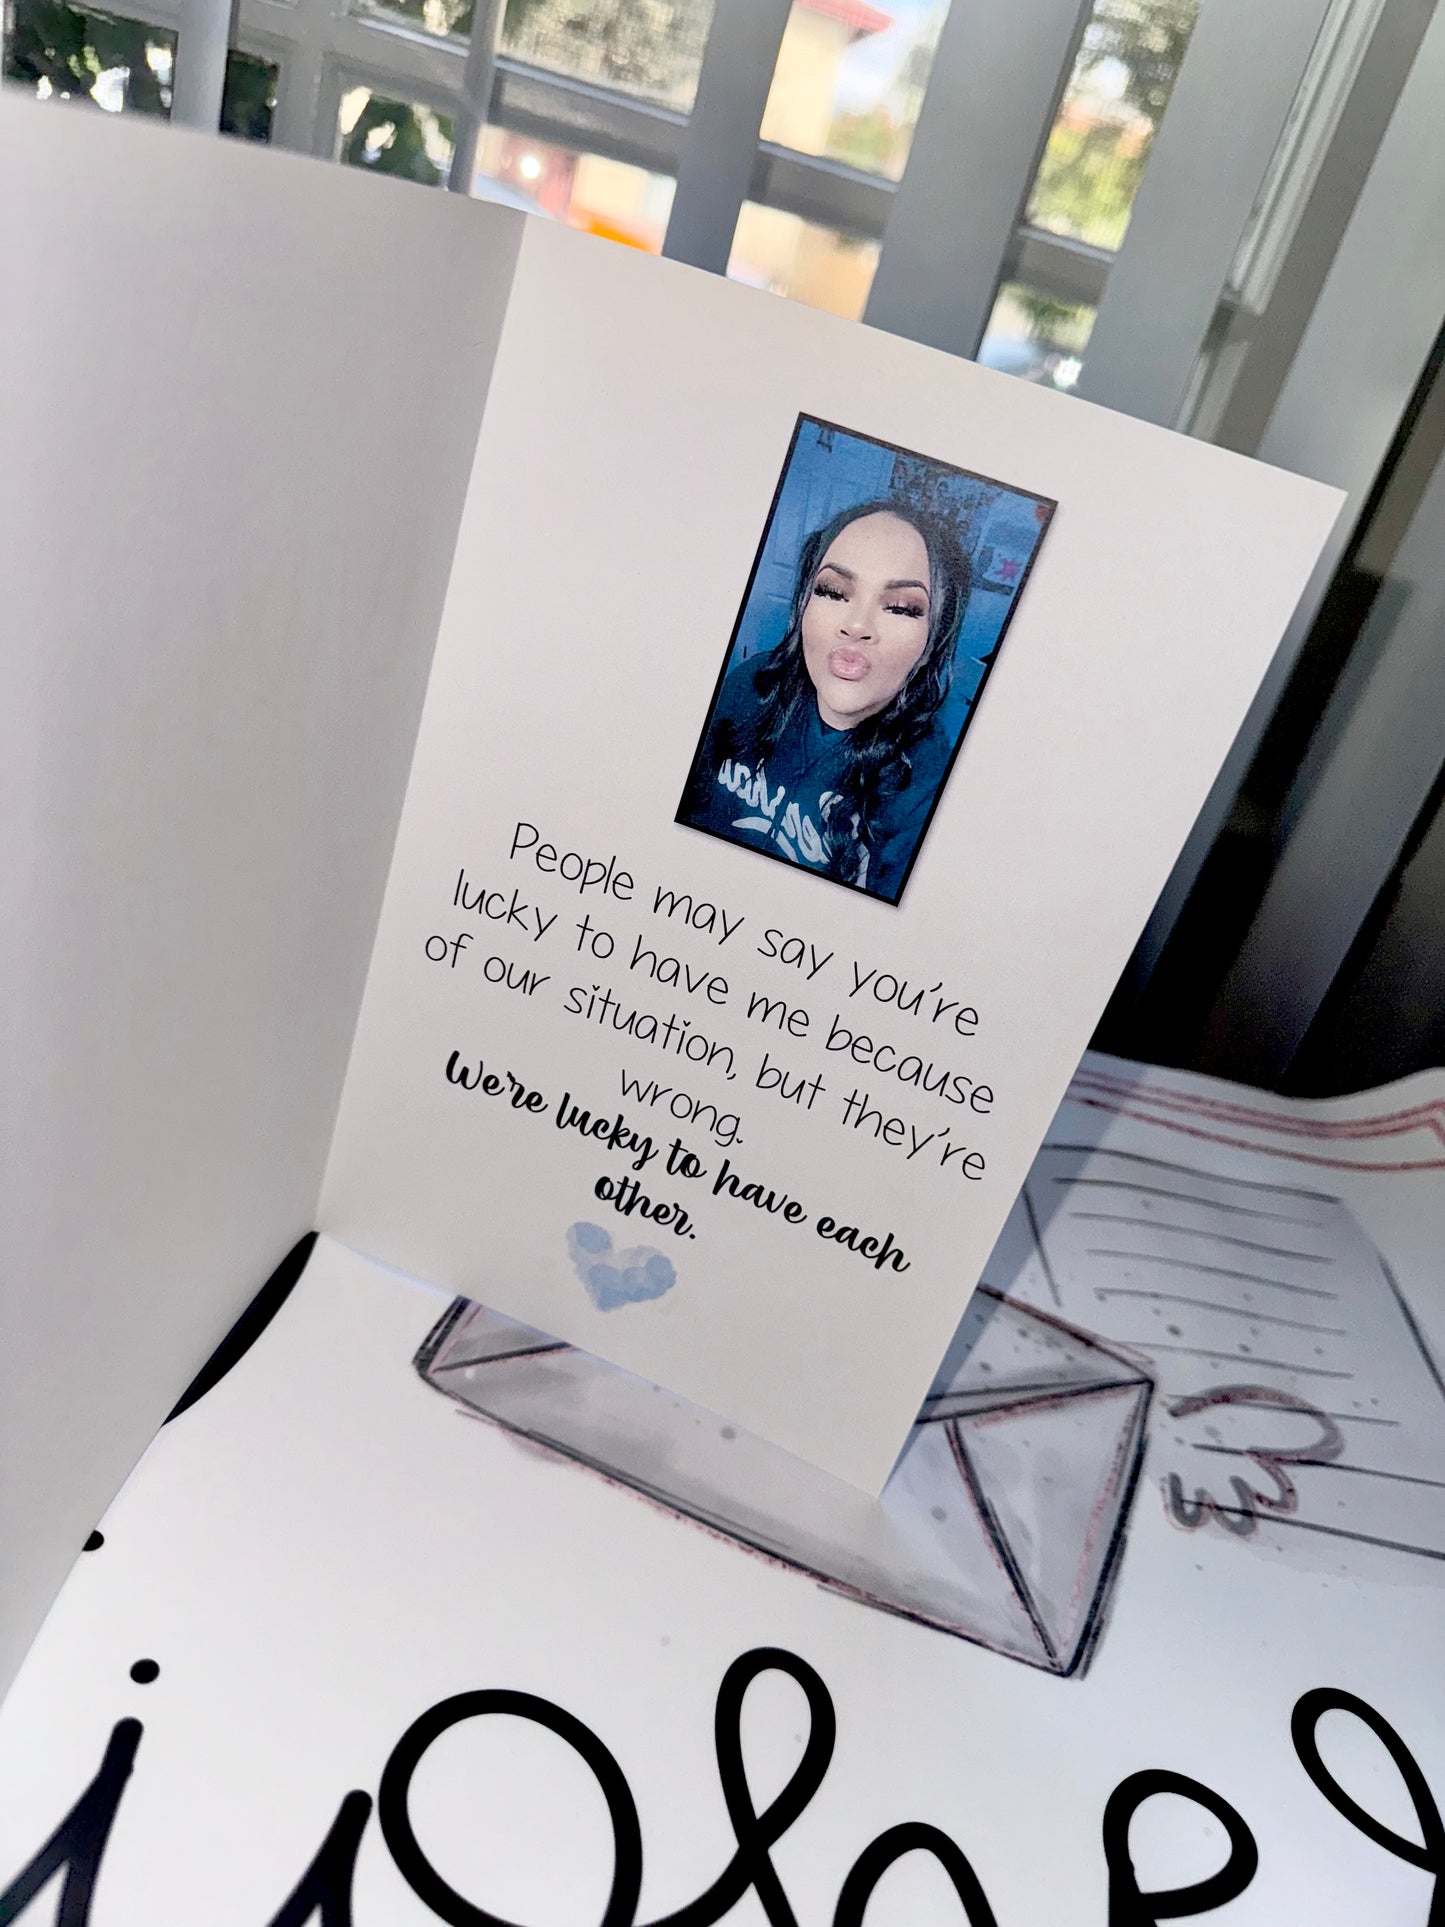 People may say you're
lucky to have me because
of our situation, but they're
wrong.
We're lucky to have each
other.